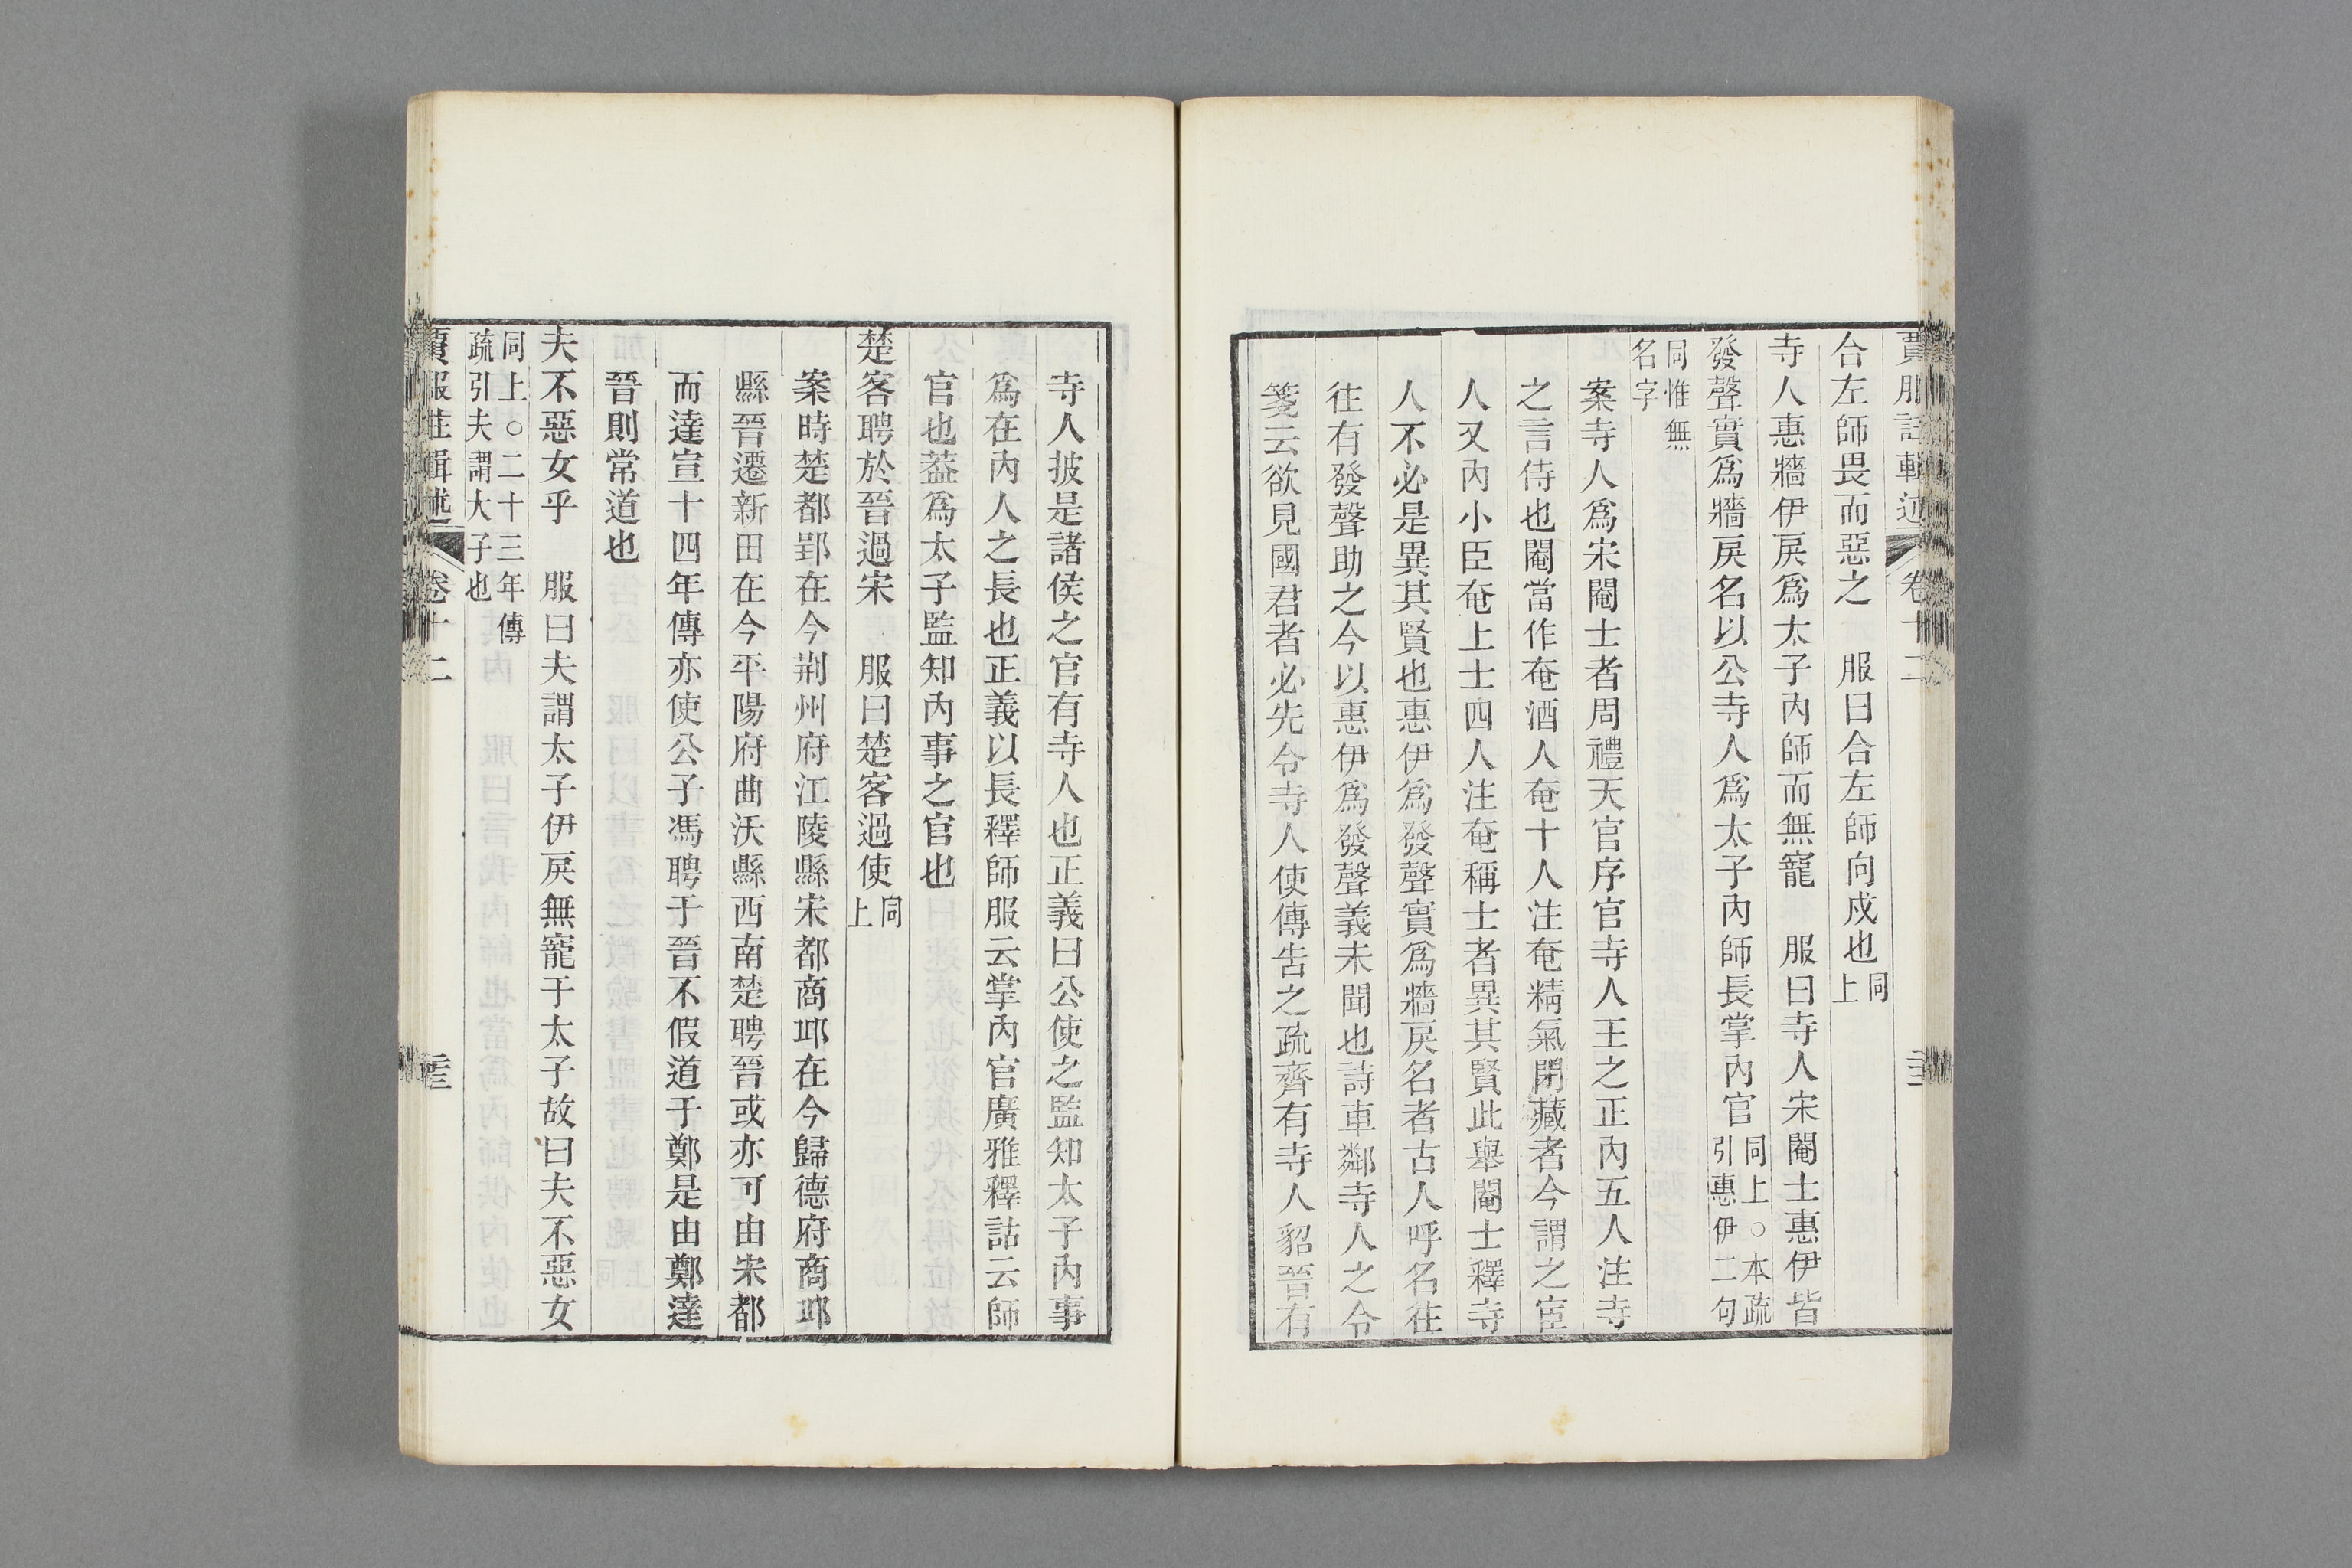 賈服註輯述 卷十二
合左師畏而惡之 服曰合左師向戍也同上
寺人惠牆伊戾爲太子內師而無寵 服曰寺人宋閹士惠伊皆
發聲實爲牆戾名以公寺人爲太子內師長掌內官同上○本疏引惠伊二句
同惟無名字
案寺人爲宋閹士者周禮天官序官寺人王之正內五人注寺
之言侍也閹當作奄酒人奄十人注奄精氣閉藏者今謂之宦
人又內小臣奄上士四人注奄稱士者異其賢此舉閹士釋寺
人不必是異其賢也惠伊爲發聲實爲牆戾名者古人呼名往
往有發聲助之今以惠伊爲發聲義未聞也詩車鄰寺人之令
箋云欲見國君者必先令寺人使傳告之疏齊有寺人貂晉有
寺人披是諸侯之官有寺人也正義曰公使之監知太子內事
爲在內人之長也正義以長釋師服云掌內官廣雅釋詁云師
官也葢爲太子監知內事之官也
楚客聘於晉過宋 服曰楚客過使同上
案時楚都郢在今荆州府江陵縣宋都商邱在今歸德府商邱
縣晉遷新田在今平陽府曲沃縣西南楚聘晉或亦可由宋都
而達宣十四年傳亦使公子馮聘于晉不假道于鄭是由鄭達
晉則常道也
夫不惡女乎 服曰夫謂太子伊戾無寵于太子故曰夫不惡女
同上○二十三年傳疏引夫謂大子也
賈服註輯述 卷十二